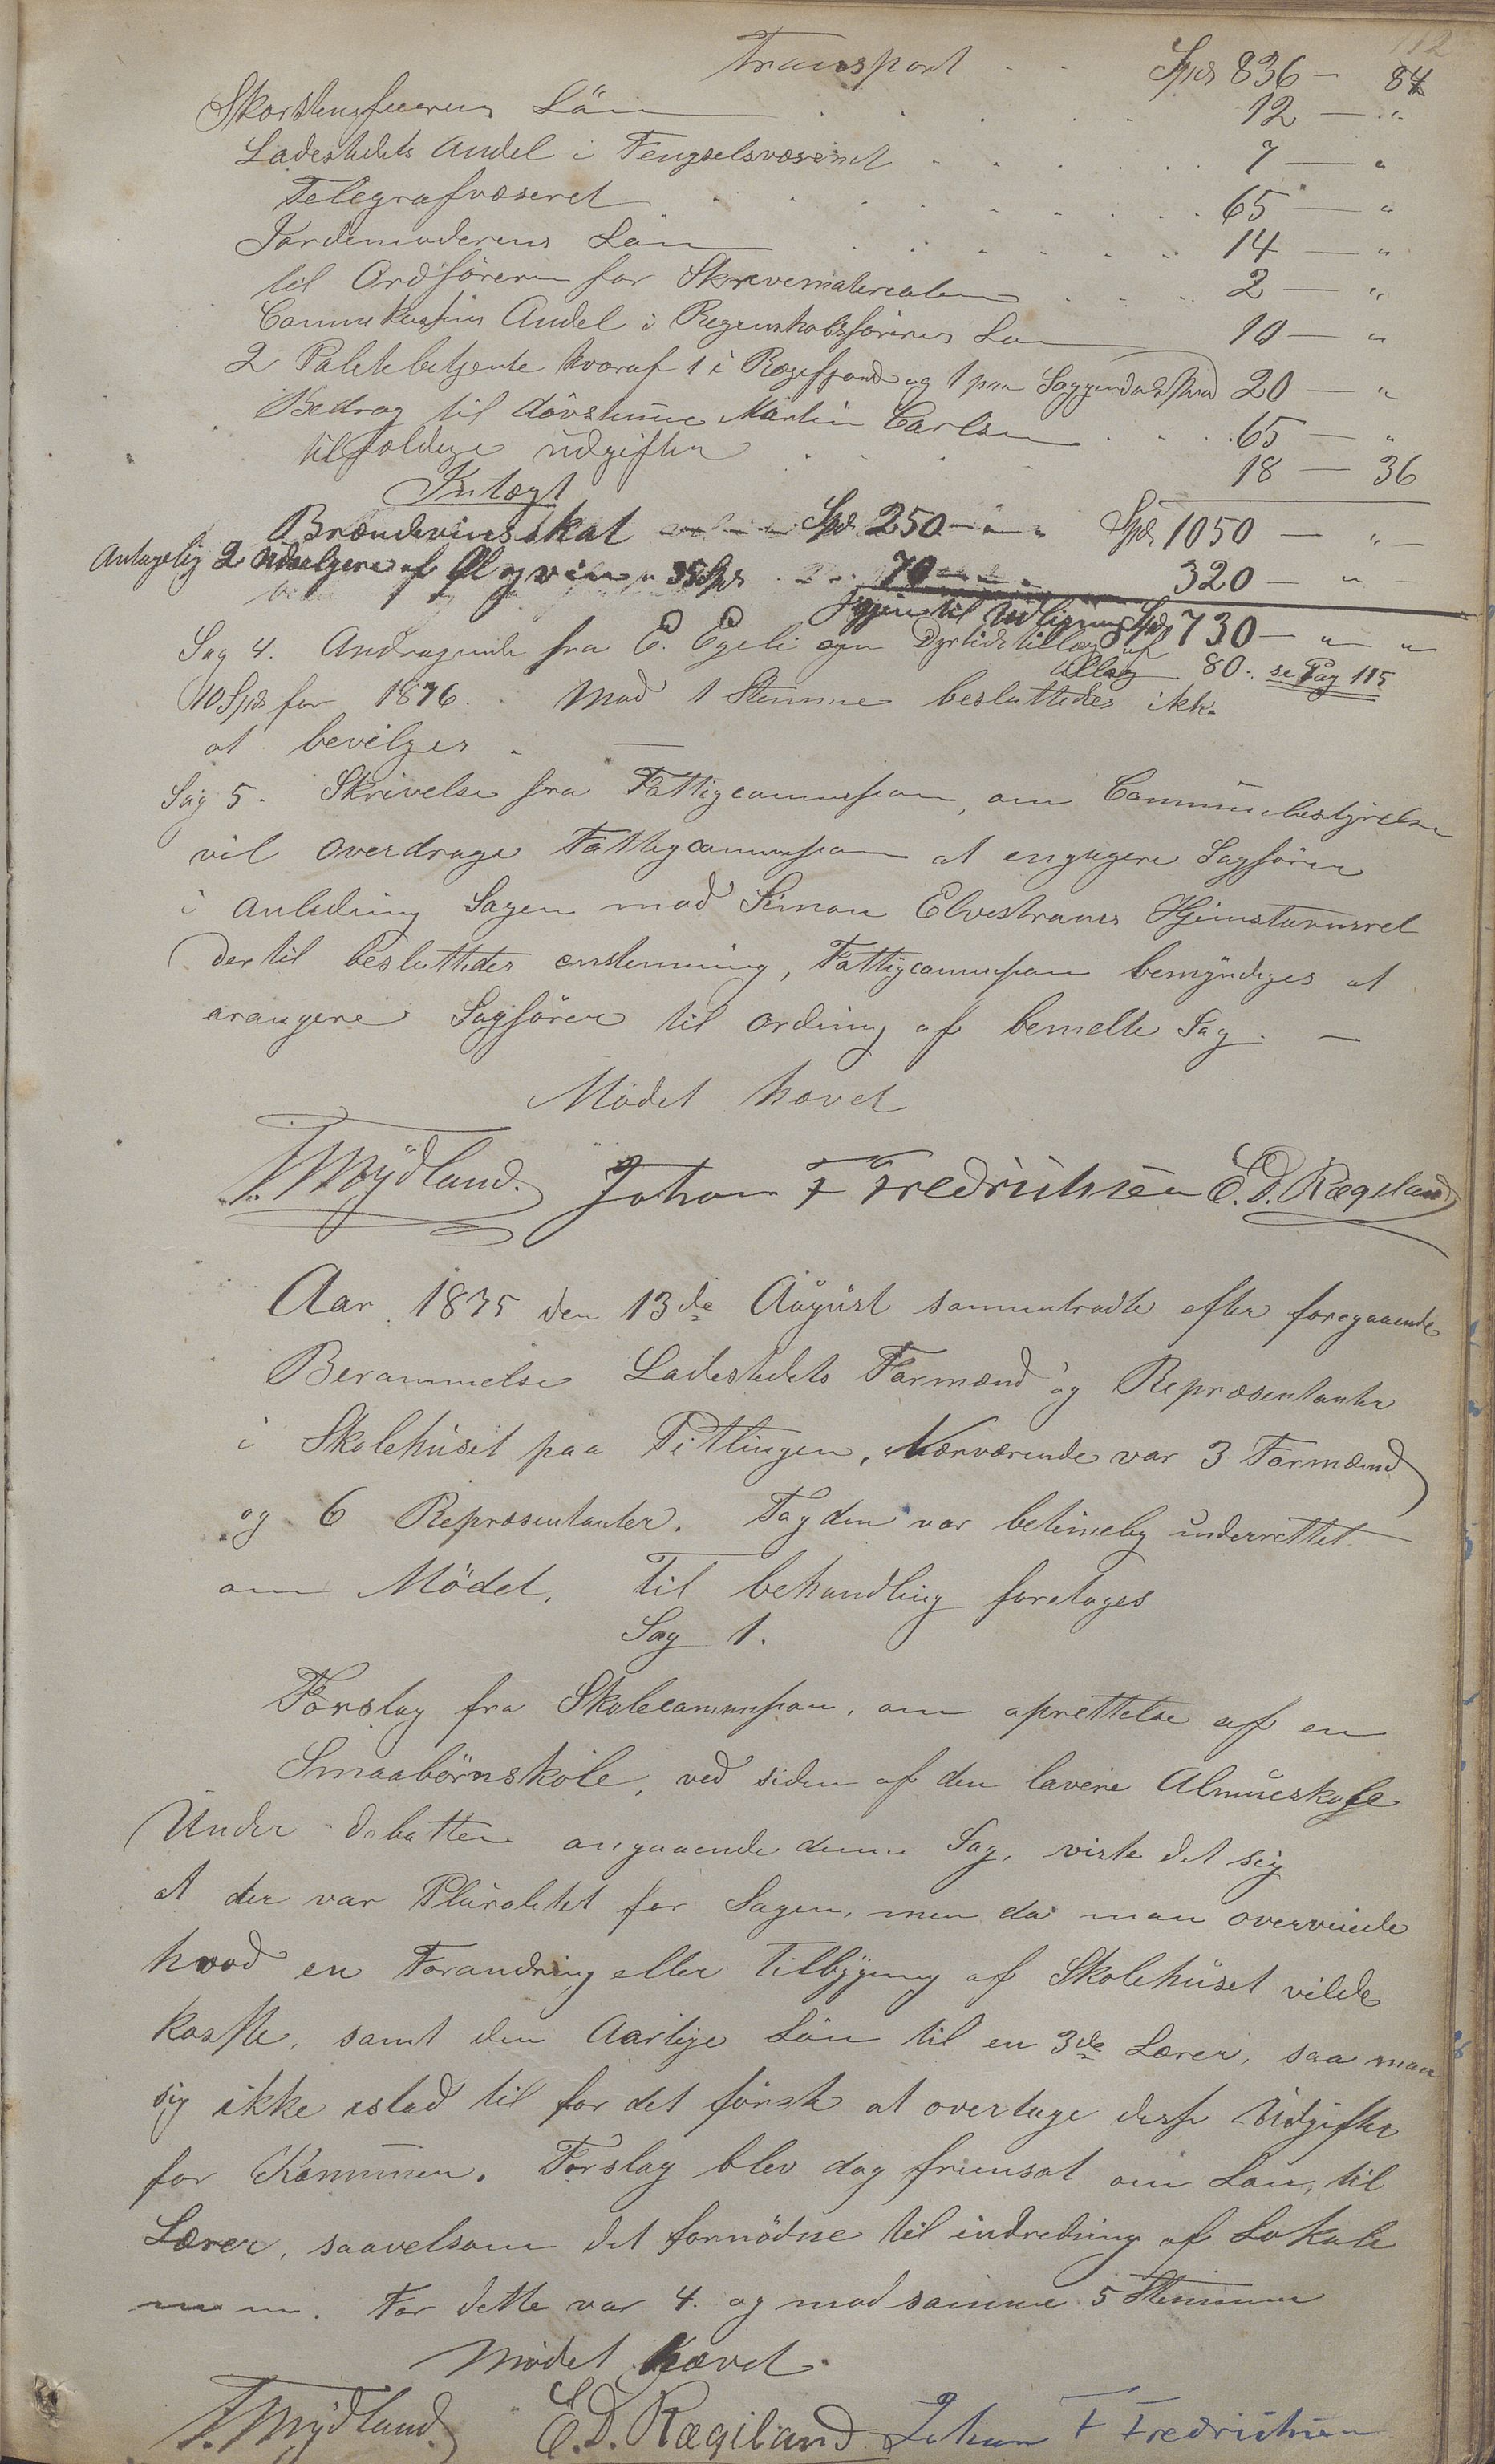 112
Transport . . Spd 836 — 84
Skorstensfeierens Lön . . . . . 12 — "
Ladestedets Andel i Fengselsvæsenet . . . . . 7 — "
Telegrafvæsenet . . . . . . . . 65 — "
Jordemoderens Lön . . . . . . 14 — "
til Ordföreren for Skrivematerialier . . . 2 — "
Communekassens Andel i Regnskabsförerens Lön 10 — "
2 Politibetjente hvoraf 1 i Rægefjord og 1 paa Soggendalstrand 20 — "
Bedrag til dövstumme Martin Carlsen . . . 65 — "
tilfældige udgifter . . . . 18 — 36
Intægt Spd 1050 — " —
Brændevinsskat Spd. 250 — " "
Antagelig 2 Udselgere af Øl og vin a 35 Spd. . 70 — 320 — "
igjen til Udligning Spd 730 — " "
tillæg 80. se Pag 115
Sag 4. Andragende fra E. Egeli om Dyrtidstillæg af
10 Spd for 1876. Mod 1 Stemme besluttedes ikke
at bevilges. —
Sag 5. Skrivelse fra Fattigcommission, om Communebestyrelsen
vil overdrage Fattigcommission at engagere Sagförer
i anledning Sagen mod Simon Elvestrands Hjemstavnsret
dertil besluttedes enstemmig, Fattigcommission bemyndiges at
arangere Sagförer til ordning af bemelte Sag. —
Mödet hævet
T. Mydland. Johan F Fredrichsen E. D. Rægeland
Aar 1875 den 13de August sammentraadte efter foregaaende
Berammelse Ladestedets Formænd og Repræsentanter
i Skolehuset paa Pitlingen, Nærværende var 3 Formænd
og 6 Repræsentanter. Fogden var betimelig underrettet
om Mödet. Til behandling foretoges
Sag 1.
Forslag fra Skolecommission, om oprettelse af en
Smaabörnskole, ved siden af den lavere Almueskole
Under debatten angaaende denne Sag, viste det sig
at der var Pluralitet for Sagen, men da man overveiede
hvad en Forandring eller Tilbygning af Skolehuset vilde
koste, samt den Aarlige Lön til en 3de Lærer, saa man
sig ikke istad til for det förste at overtage disse Udgifter
for Kommunen. Forslag blev dog fremsat om Lön, til
Lærer, saavelsom det fornödne til indredning af Lokale
m m. For dette var 4. og mod samme 5 Stemmer
Mödet hævet
T. Mydland. E. D. Rægeland Johan F Fredrichsen